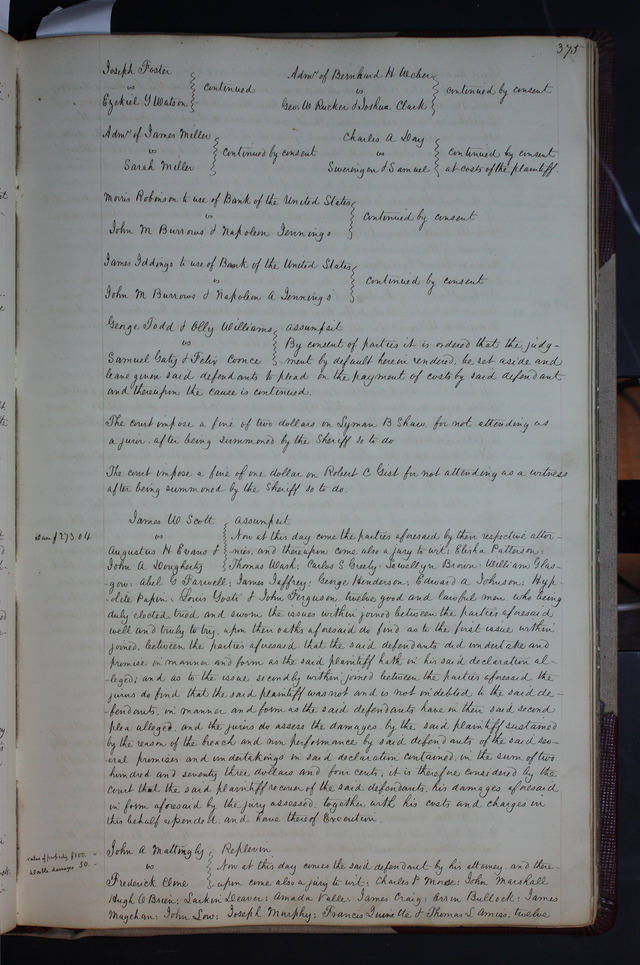 375
Joseph Foster
vs
Ezekiel Y Watson
continued
Admr of Bernhard H Weber
vs
Geo W Rucker & Joshua Clark
continued by consent
Admr of James Miller
vs
Sarah Miller
continued by consent
Charles A Day
vs
Sweringen & Samuel
continued by consent
at costs of the plaintiff
Morris Robinson to use of Bank of the United States
vs
John M Burrows & Napoleon Jennings
continued by consent
James Iddings to use of Bank of the United States
vs
John M Burrows & Napoleon A Jennings
continued by consent
George Todd & Olly Williams
vs
Samuel Gaty & Felix Coonce
assumpsit
By consent of parties it is ordered that the judg-
ment by default herein rendered, be set aside and
leave given said defendants to plead on the payment of costs by said defendant
and thereupon the cause is continued.
The court impose a fine of two dollars on Lyman B Shaw for not attending as
a juror, after being summoned by the Sheriff so to do
The court impose a fine of one dollar on Robert C Gist for not attending as a witness
after being summoned by the Sheriff so to do.
$273.04
James W Scott
vs
Augustus H Evans &
John A Dougherty
assumpsit
Now at this day come the parties aforesaid by their respective attor-
nies, and thereupon come also a jury to wit; Elisha Patterson;
Thomas Wash; Carlos S Greely; Lewellyn Brown; William Glas-
gow; Abel G Farwell; James Jaffrey; George Henderson; Edward A Johnson; Hyp-
olite Papin; Louis Yosti & John Ferguson, twelve good and lawful men who being
duly elected tried and sworn the issues within joined between the parties aforesaid
well and truly to try, upon their oaths aforesaid do find as to the first issue within
joined, between the parties aforesaid that the said defendants did undertake and
promise in manner and form as the said plaintiff hath in his said declaration al-
leged; and as to the issue secondly within joined between the parties aforesaid the
jurors do find that the said plaintiff was not and is not indebted to the said de-
fendants, in manner and form as the said defendants have in their said second
plea alleged, and the jurors do assess the damages by the said plaintiff sustained
by the reason of the breach and non performance by said defendants of the said sev-
eral promises and undertakings in said declaration contained, in the sum of two
hundred and seventy three dollars and four cents; it is therefore considered by the
court that the said plaintiff recover of the said defendants, his damages aforesaid
in form aforesaid by the jury assessed, together with his costs and charges in
this behalf expended, and have thereof Execution.
value of property $100.
double damages 50.
John A Mattingly
vs
Frederick Clone
Replevin
Now at this day comes the said defendant by his attorney, and there-
upon come also a jury to wit; Charles P Morse; John Marshall
Hugh O Brien; Larkin Deaver; Amada Valle; James Craig; Orrin Bullock; James
Maychan; John Low; Joseph Murphy; Francis Quinette & Thomas L Amiss, twelve